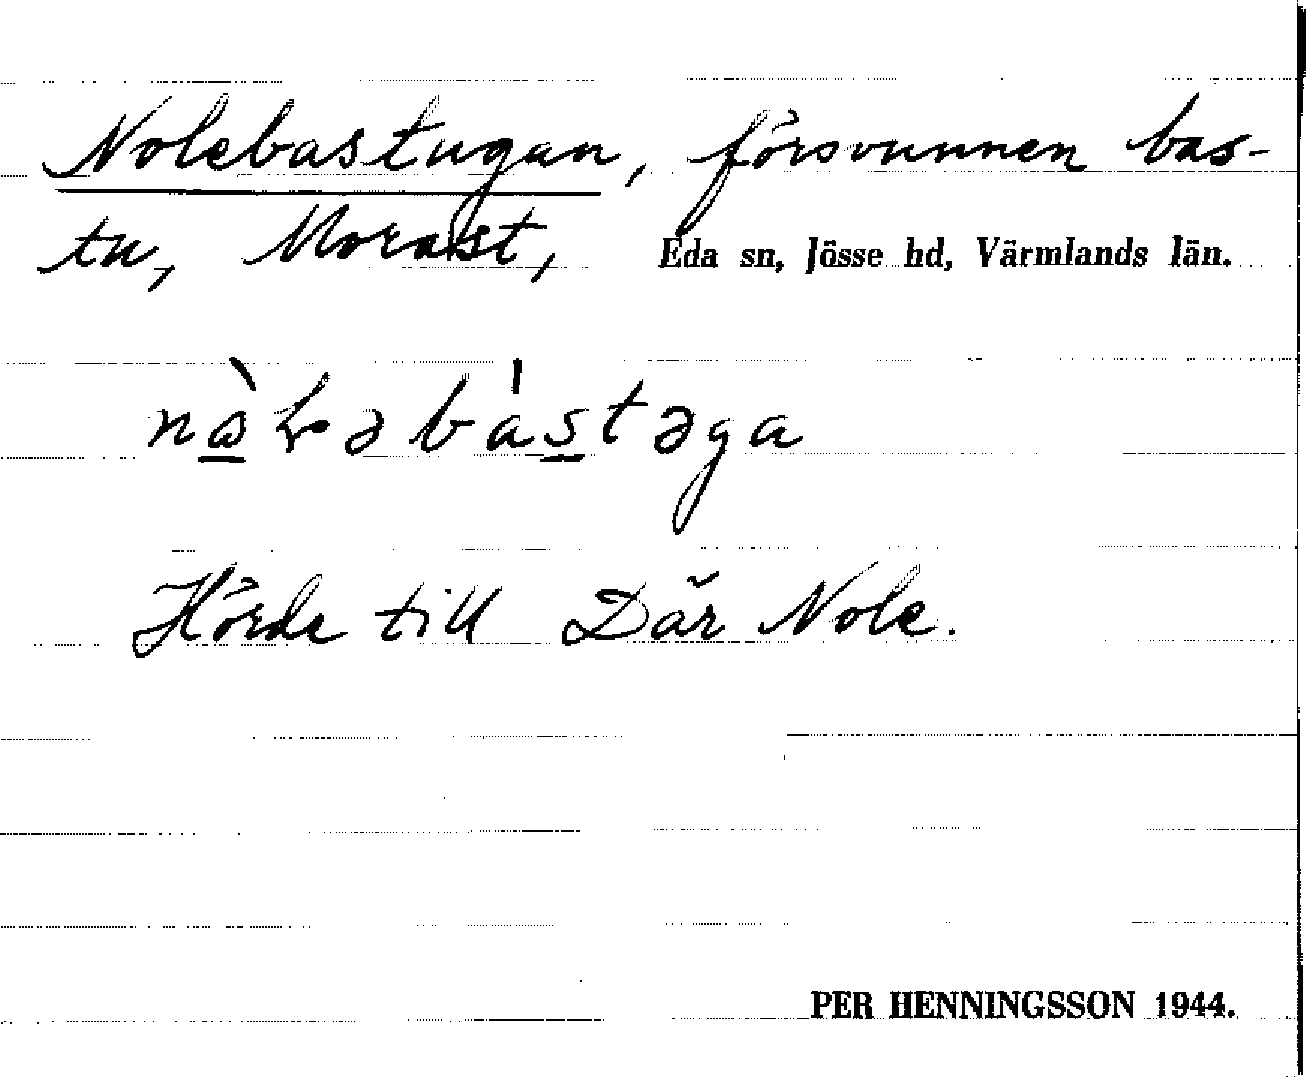 Nolebastugan, försvunnen bas-
tu, Morast, Eda sn, Jösse hd, Värmlands län.
Hörde till Där Nole.
PER HENNINGSSON 1944.